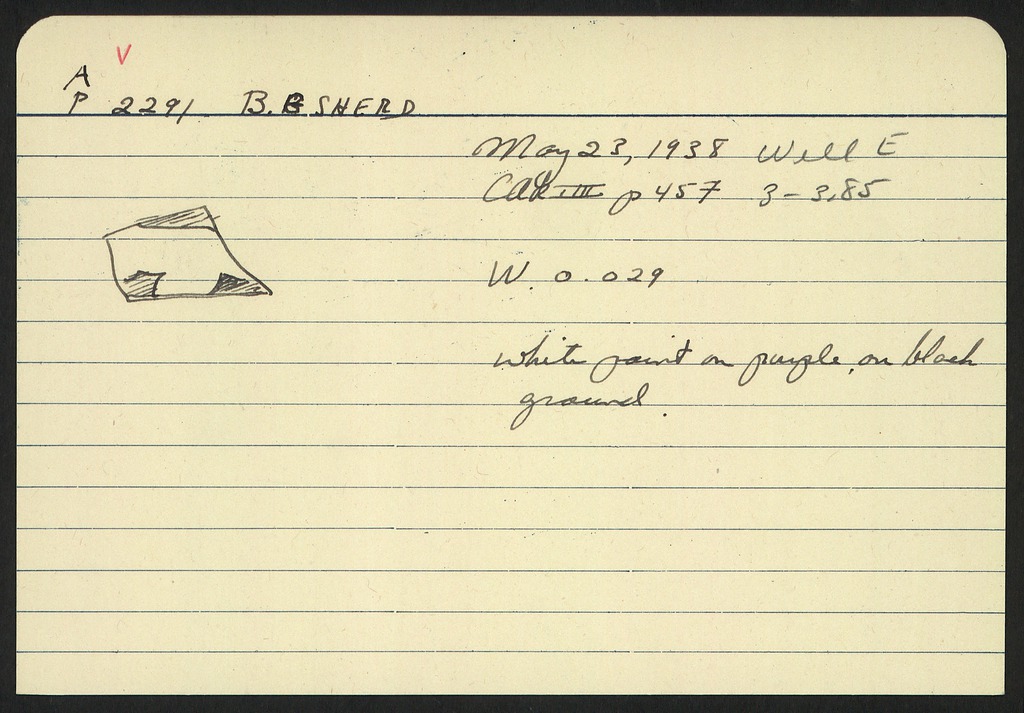 V
A
P 2291 B.B SHERD
May 23, 1938 Well E
III p 457 3-3.85
W. 0.029
white paint on purple, on black
ground.